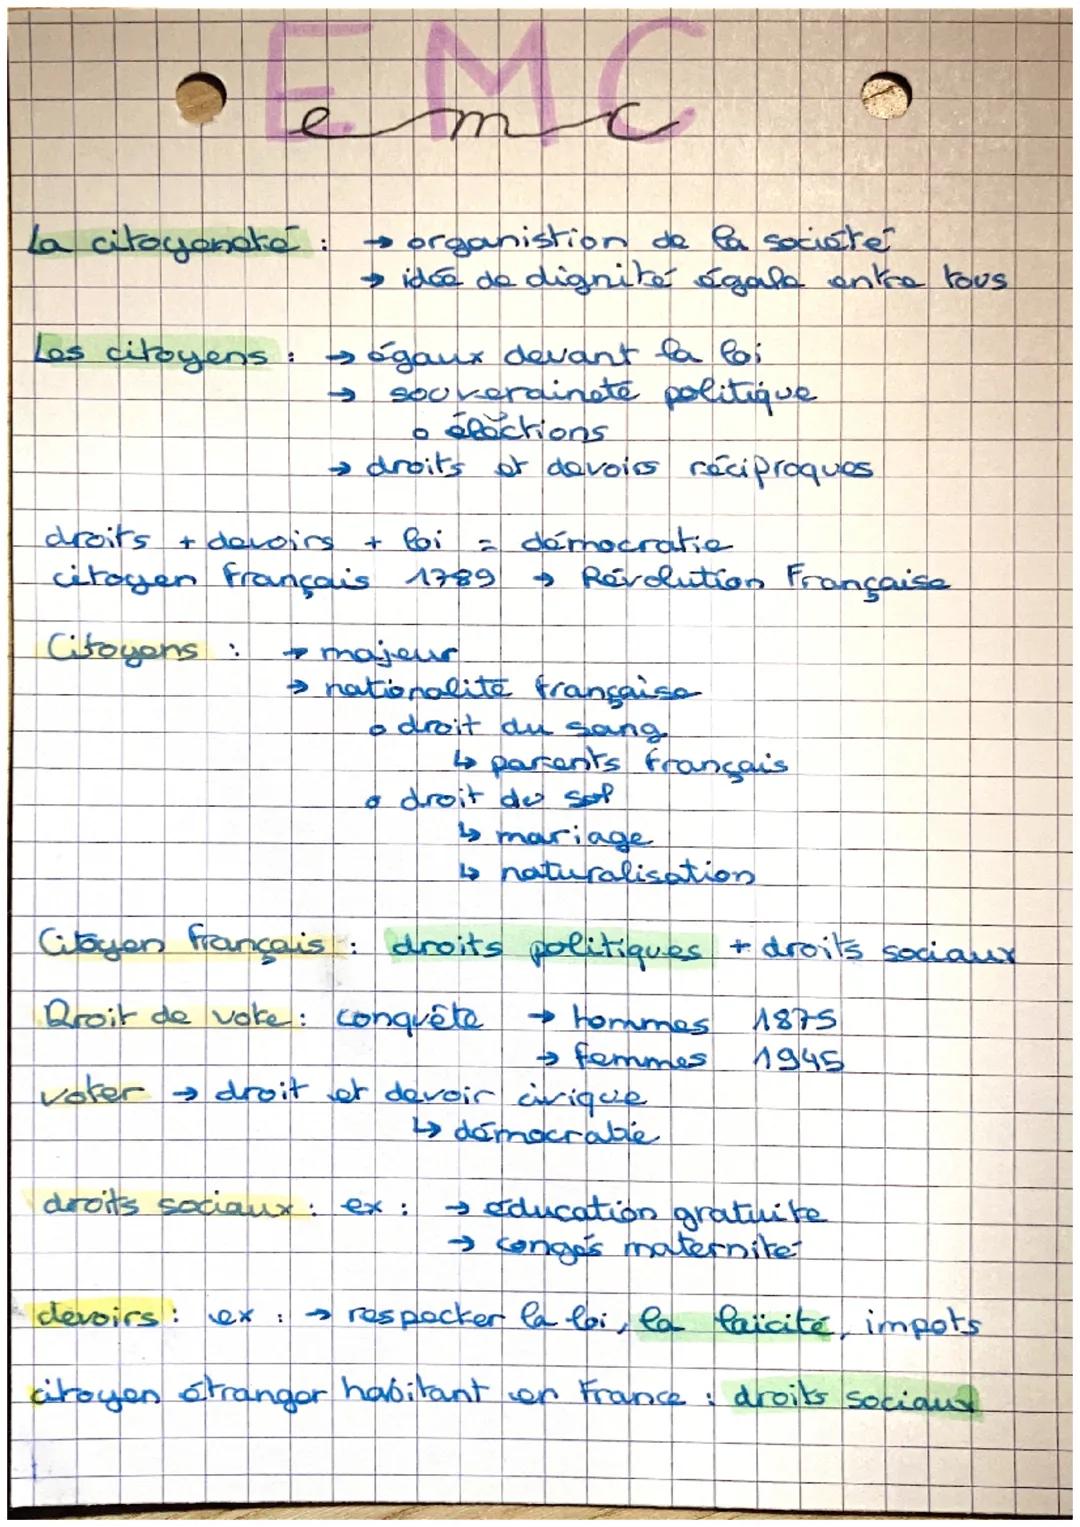 EMC
emc
La citoyeneté : → organistion de la société
→ idée de dignité égale entre tous
Les citoyens : → égaux devant la loi
→ souveraineté politique
o élections
→ droits et devoirs réciproques
droits + devoirs + loi = démocratie
citoyen français 1789 → Révolution Française
Citoyens : → majeur
→ nationalité française
o droit du sang
↳ parents français
o droit du sol
↳ mariage
↳ naturalisation
Citoyen français : droits politiques + droits sociaux
Droit de vote : conquête → hommes 1875
→ femmes 1945
voter → droit et devoir civique
↳ démocratie
droits sociaux : ex : → éducation gratuite
→ congés maternité
devoirs : ex : → respecter la loi, la laïcité, impots
citoyen étranger habitant en France : droits sociaux